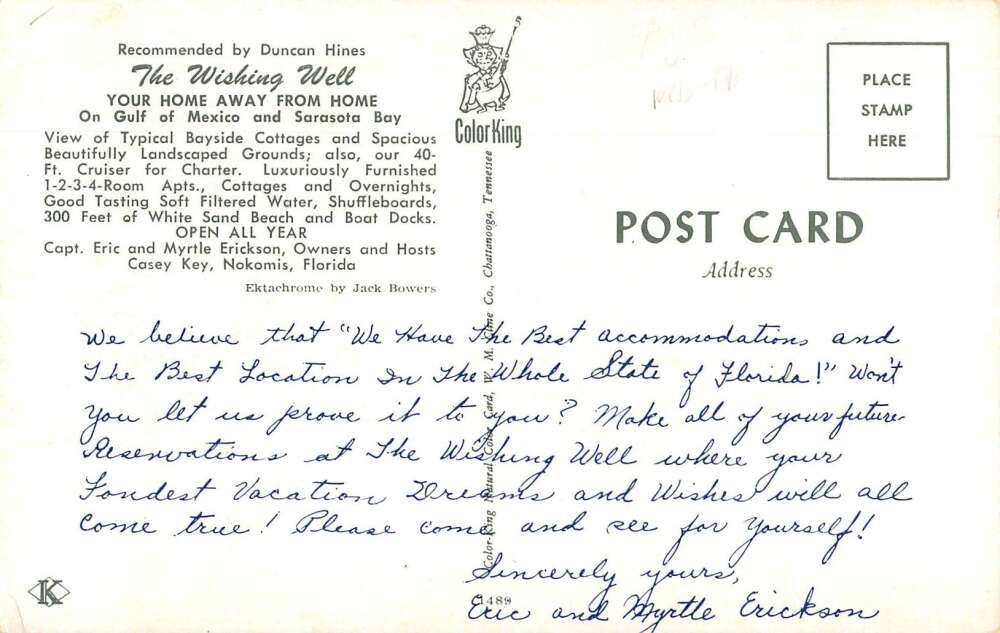 Recommended by Duncan Hines
The Wishing Well
YOUR HOME AWAY FROM HOME
On Gulf of Mexico and Sarasota Bay
View of Typical Bayside Cottages and Spacious
Beautifully Landscaped Grounds; also, our 40-
Ft. Cruiser for Charter. Luxuriously Furnished
1-2-3-4-Room Apts., Cottages and Overnights,
Good Tasting Soft Filtered Water, Shuffleboards,
300 Feet of White Sand Beach and Boat Docks.
OPEN ALL YEAR
Capt. Eric and Myrtle Erickson, Owners and Hosts
Casey Key, Nokomis, Florida
Ektachrome by Jack Bowers
ColorKing
Color-King Natural Color Card, W. M. Cline Co., Chattanooga, Tennessee
PLACE
STAMP
HERE
POST CARD
Address
We believe that "We Have The Best accommodations and
The Best Location In The Whole State of Florida!" Won't
you let us prove it to you? Make all of your future
Reservations at The Wishing Well where your
Fondest Vacation Dreams and Wishes will all
come true! Please come and see for yourself!
Sincerely yours,
Eric and Myrtle Erickson
K
C1489